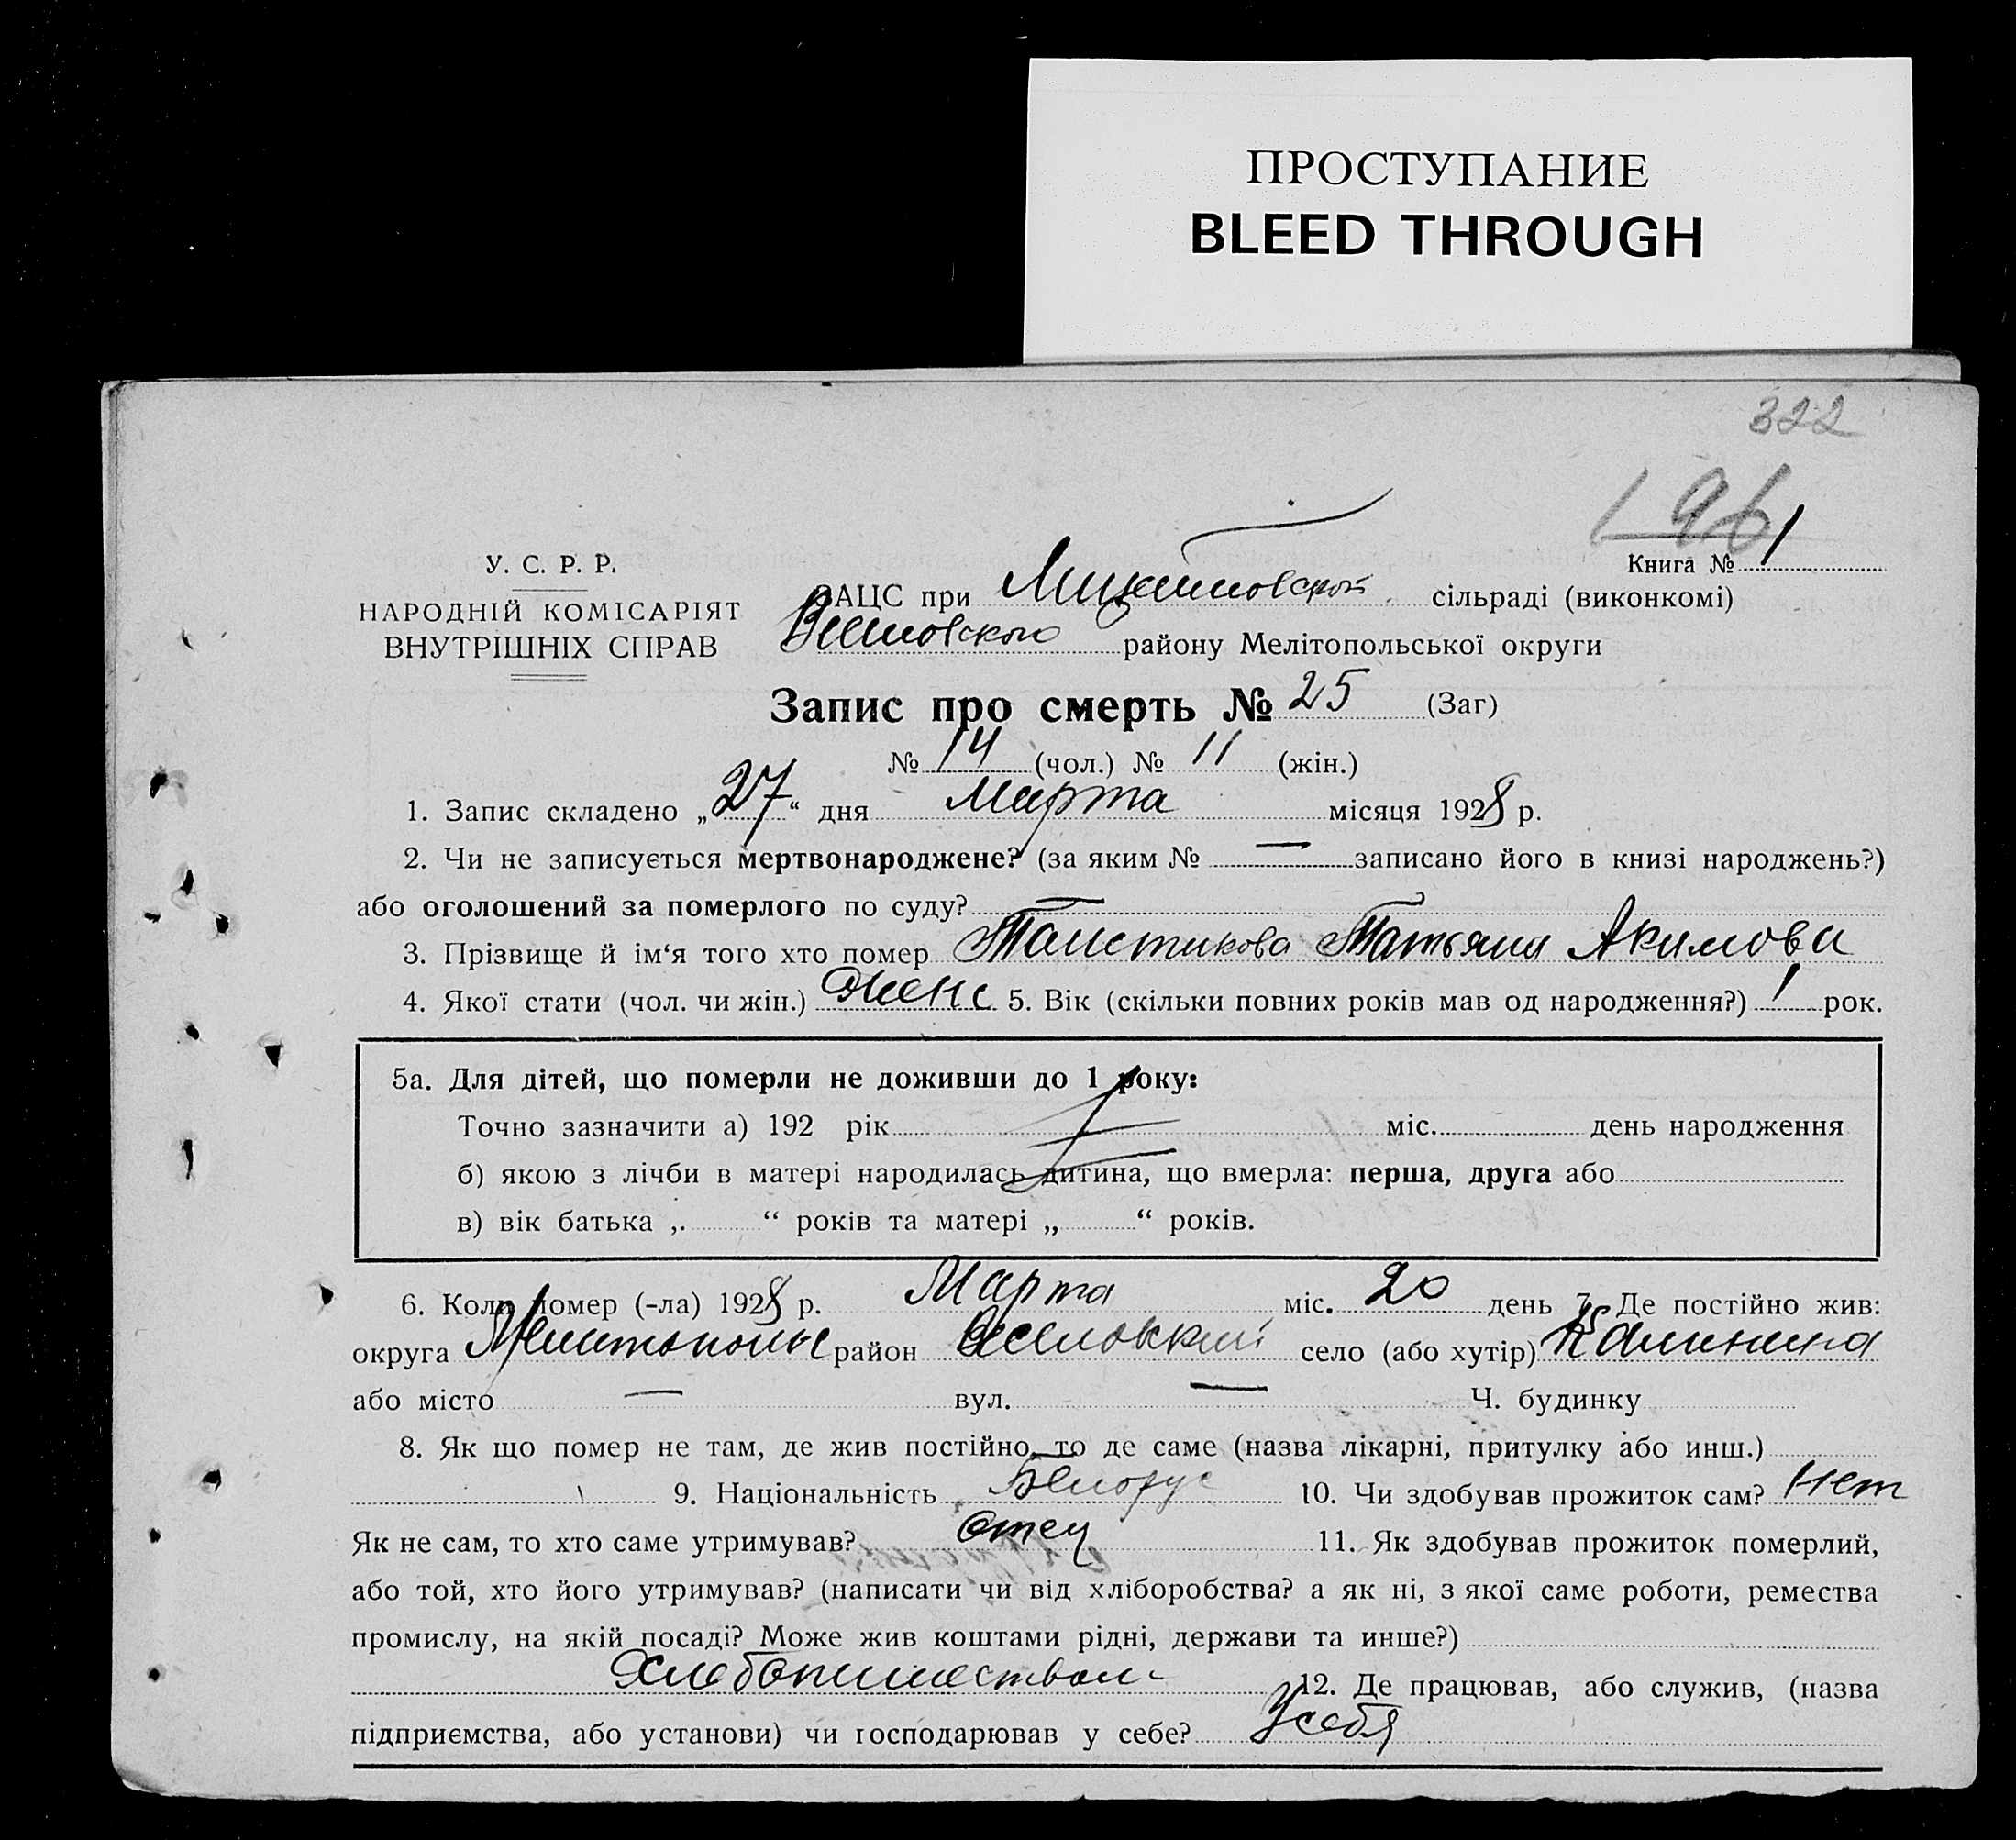 ПРОСТУПАНИЕ
BLEED THROUGH
322
196
Книга № 1
У. С. Р. Р.
НАРОДНІЙ КОМІСАРІЯТ
ВНУТРІШНІХ СПРАВ
РАЦС при сільраді (виконкомі)
району Мелітопольської округи
Запис про смерть № 25 (Заг)
№ 14 (чол.) № 11 (жін.)
1. Запис складено „27“ дня Марта місяця 1928 р.
2. Чи не записується мертвонароджене? (за яким № — записано його в книзі народжень?)
або оголошений за померлого по суду? —
3. Прізвище й ім‘я того хто помер Татьяна Акимова
4. Якої стати (чол. чи жін.) Женс 5. Вік (скільки повних років мав од народження?) 1 рок.
5а. Для дітей, що померли не доживши до 1 року:
Точно зазначити а) 192 рік міс. день народження
б) якою з лічби в матері народилась дитина, що вмерла: перша, друга або
в) вік батька „ “ років та матері „ “ років.
6. Коли помер (-ла) 1928 р. Марта міс. 20 день 7. Де постійно жив:
округа Мелитополь район Веселовский село (або хутір) Калинина
або місто — вул. — Ч. будинку
8. Як що помер не там, де жив постійно, то де саме (назва лікарні, притулку або инш.)
9. Національність Белорус 10. Чи здобував прожиток сам? Нет
Як не сам, то хто саме утримував? Отец 11. Як здобував прожиток померлий,
або той, хто його утримував? (написати чи від хліборобства? а як ні, з якої саме роботи, ремества
промислу, на якій посаді? Може жив коштами рідні, держави та инше?)
Хлебопашеством 12. Де працював, або служив, (назва
підприємства, або установи) чи господарював у себе? У себя